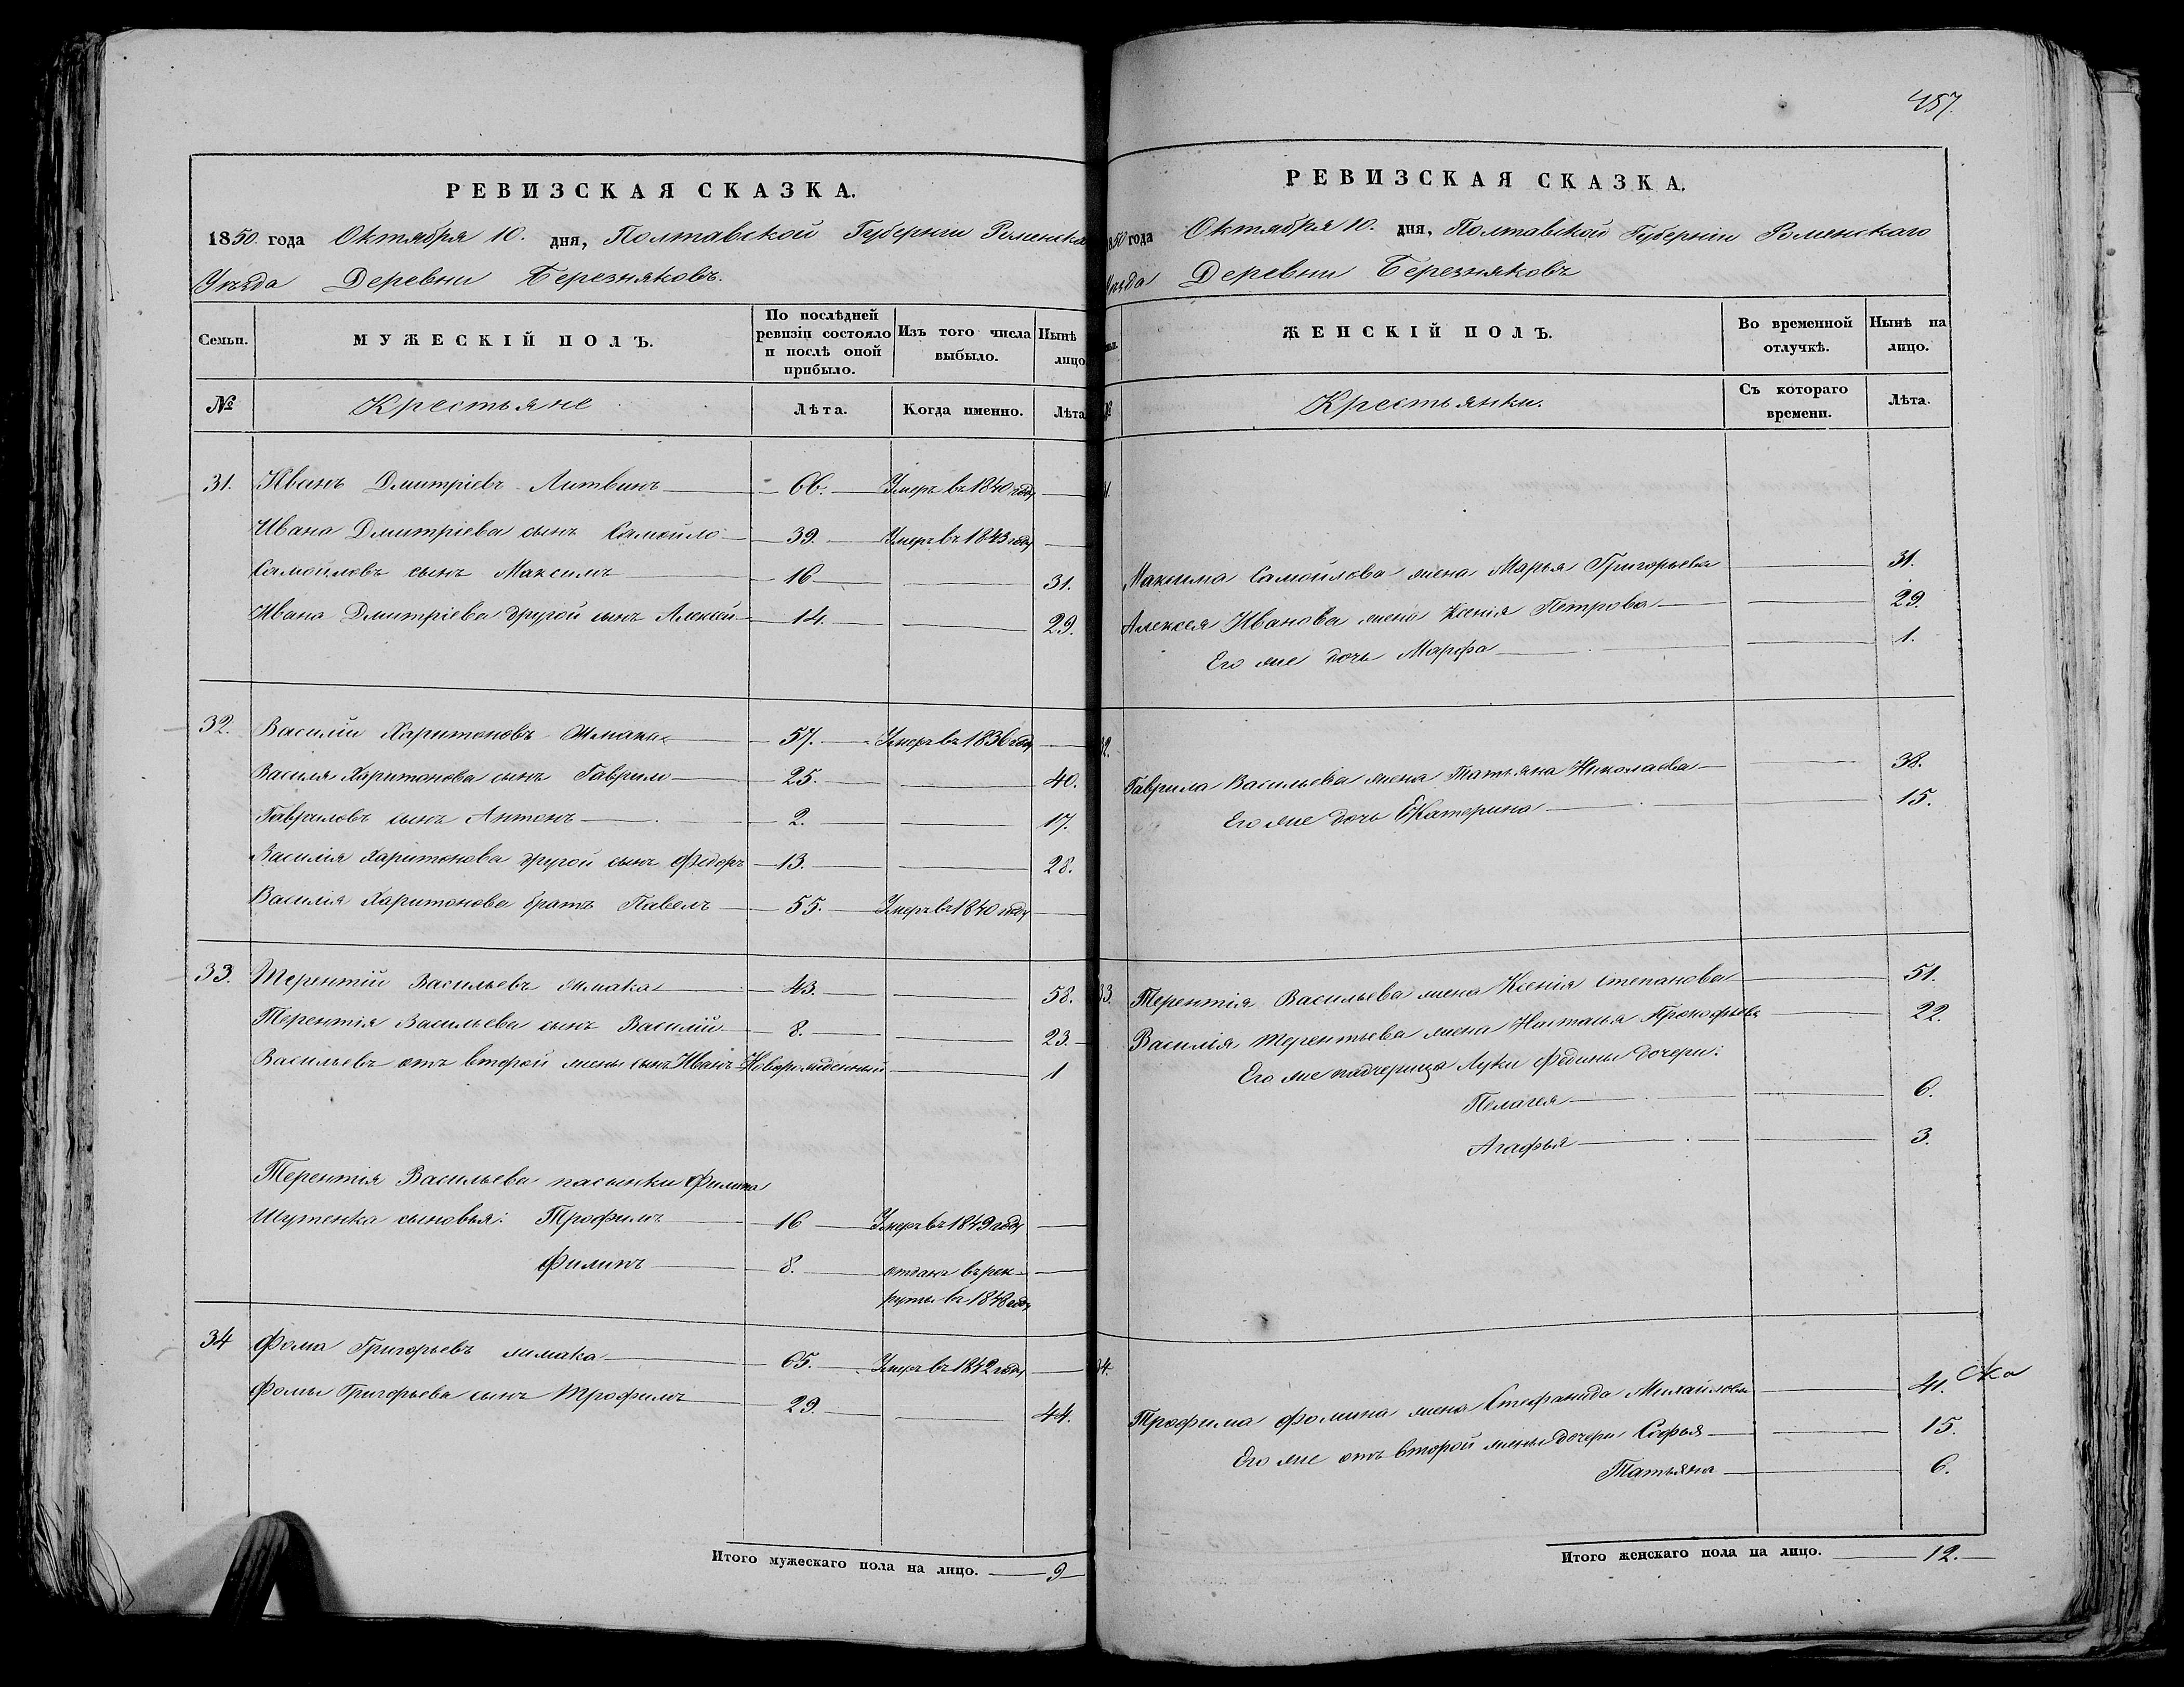 РЕВИЗСКАЯ СКАЗКА.
1850 года Октября 10. дня, Полтавской Губерніи Роменска
Уѣзда Деревни Березняковъ.
Семьи. МУЖЕСКІЙ ПОЛЪ. По послѣдней ревизіи состояло и послѣ оной прибыло. Изъ того числа выбыло. Нынѣ лицо
№ Крестьяне Лѣта. Когда именно. Лѣта
31. Иванъ Дмитріевъ Литвинъ 66. Умеръ въ 1840 году
Ивана Дмитріева сынъ Самойло 39. Умеръ въ 1843 году
Самойловъ сынъ Максимъ 16 31.
Ивана Дмитріева другой сынъ Алексѣй 14. 29.
32. Василій Харитоновъ 57. Умеръ въ 1836 году
Василя Харитонова сынъ Гаврило 25. 40.
Гавриловъ сынъ Антонъ 2. 17.
Василія Харитонова другой сынъ Федоръ 13. 28.
Василія Харитонова братъ Павелъ 55. Умеръ въ 1840 году
33. Терентій Васильевъ 43. 58.
Терентія Васильева сынъ Василій 8. 23.
Васильевъ отъ второй жены сынъ Иванъ Новорожденный 1
Терентія Васильева пасынки Филипа
Шутенка сыновья: Трофимъ 16 Умеръ въ 1849 году
Филипъ 8. отданъ въ рек-
руты въ 1848 году
34 Фома Григорьевъ 65. Умеръ въ 1842 году
Фомы Григорьева сынъ Трофимъ 29. 44.
Итого мужескаго пола на лицо. 9
457.
РЕВИЗСКАЯ СКАЗКА.
1850 года Октября 10. дня, Полтавской Губерніи Роменскаго
Уѣзда Деревни Березняковъ
ЖЕНСКІЙ ПОЛЪ. Во временной отлучкѣ. Нынѣ на лицо.
№ Крестьянки. Съ котораго времени. Лѣта.
Максима Самойлова жена Марья Григорьева 31.
Алексея Иванова жена Ксенія Петрова 29.
Его же дочь Марфа 1.
Гаврила Васильева жена Татьяна Николаева 38.
Его же дочь Екатерина 15.
33. Терентія Васильева жена Ксенія Степанова 51.
Василія Терентьева жена Настасья Прокофьева 22.
Его же падчерицы Луки Федины дочери:
Пелагея 6.
Агафья 3.
34. Трофима Фомина жена Стефанида Михайлова 41.
Его же отъ второй жены дочери Софья 15.
Татьяна 6.
Итого женскаго пола на лицо. 12.